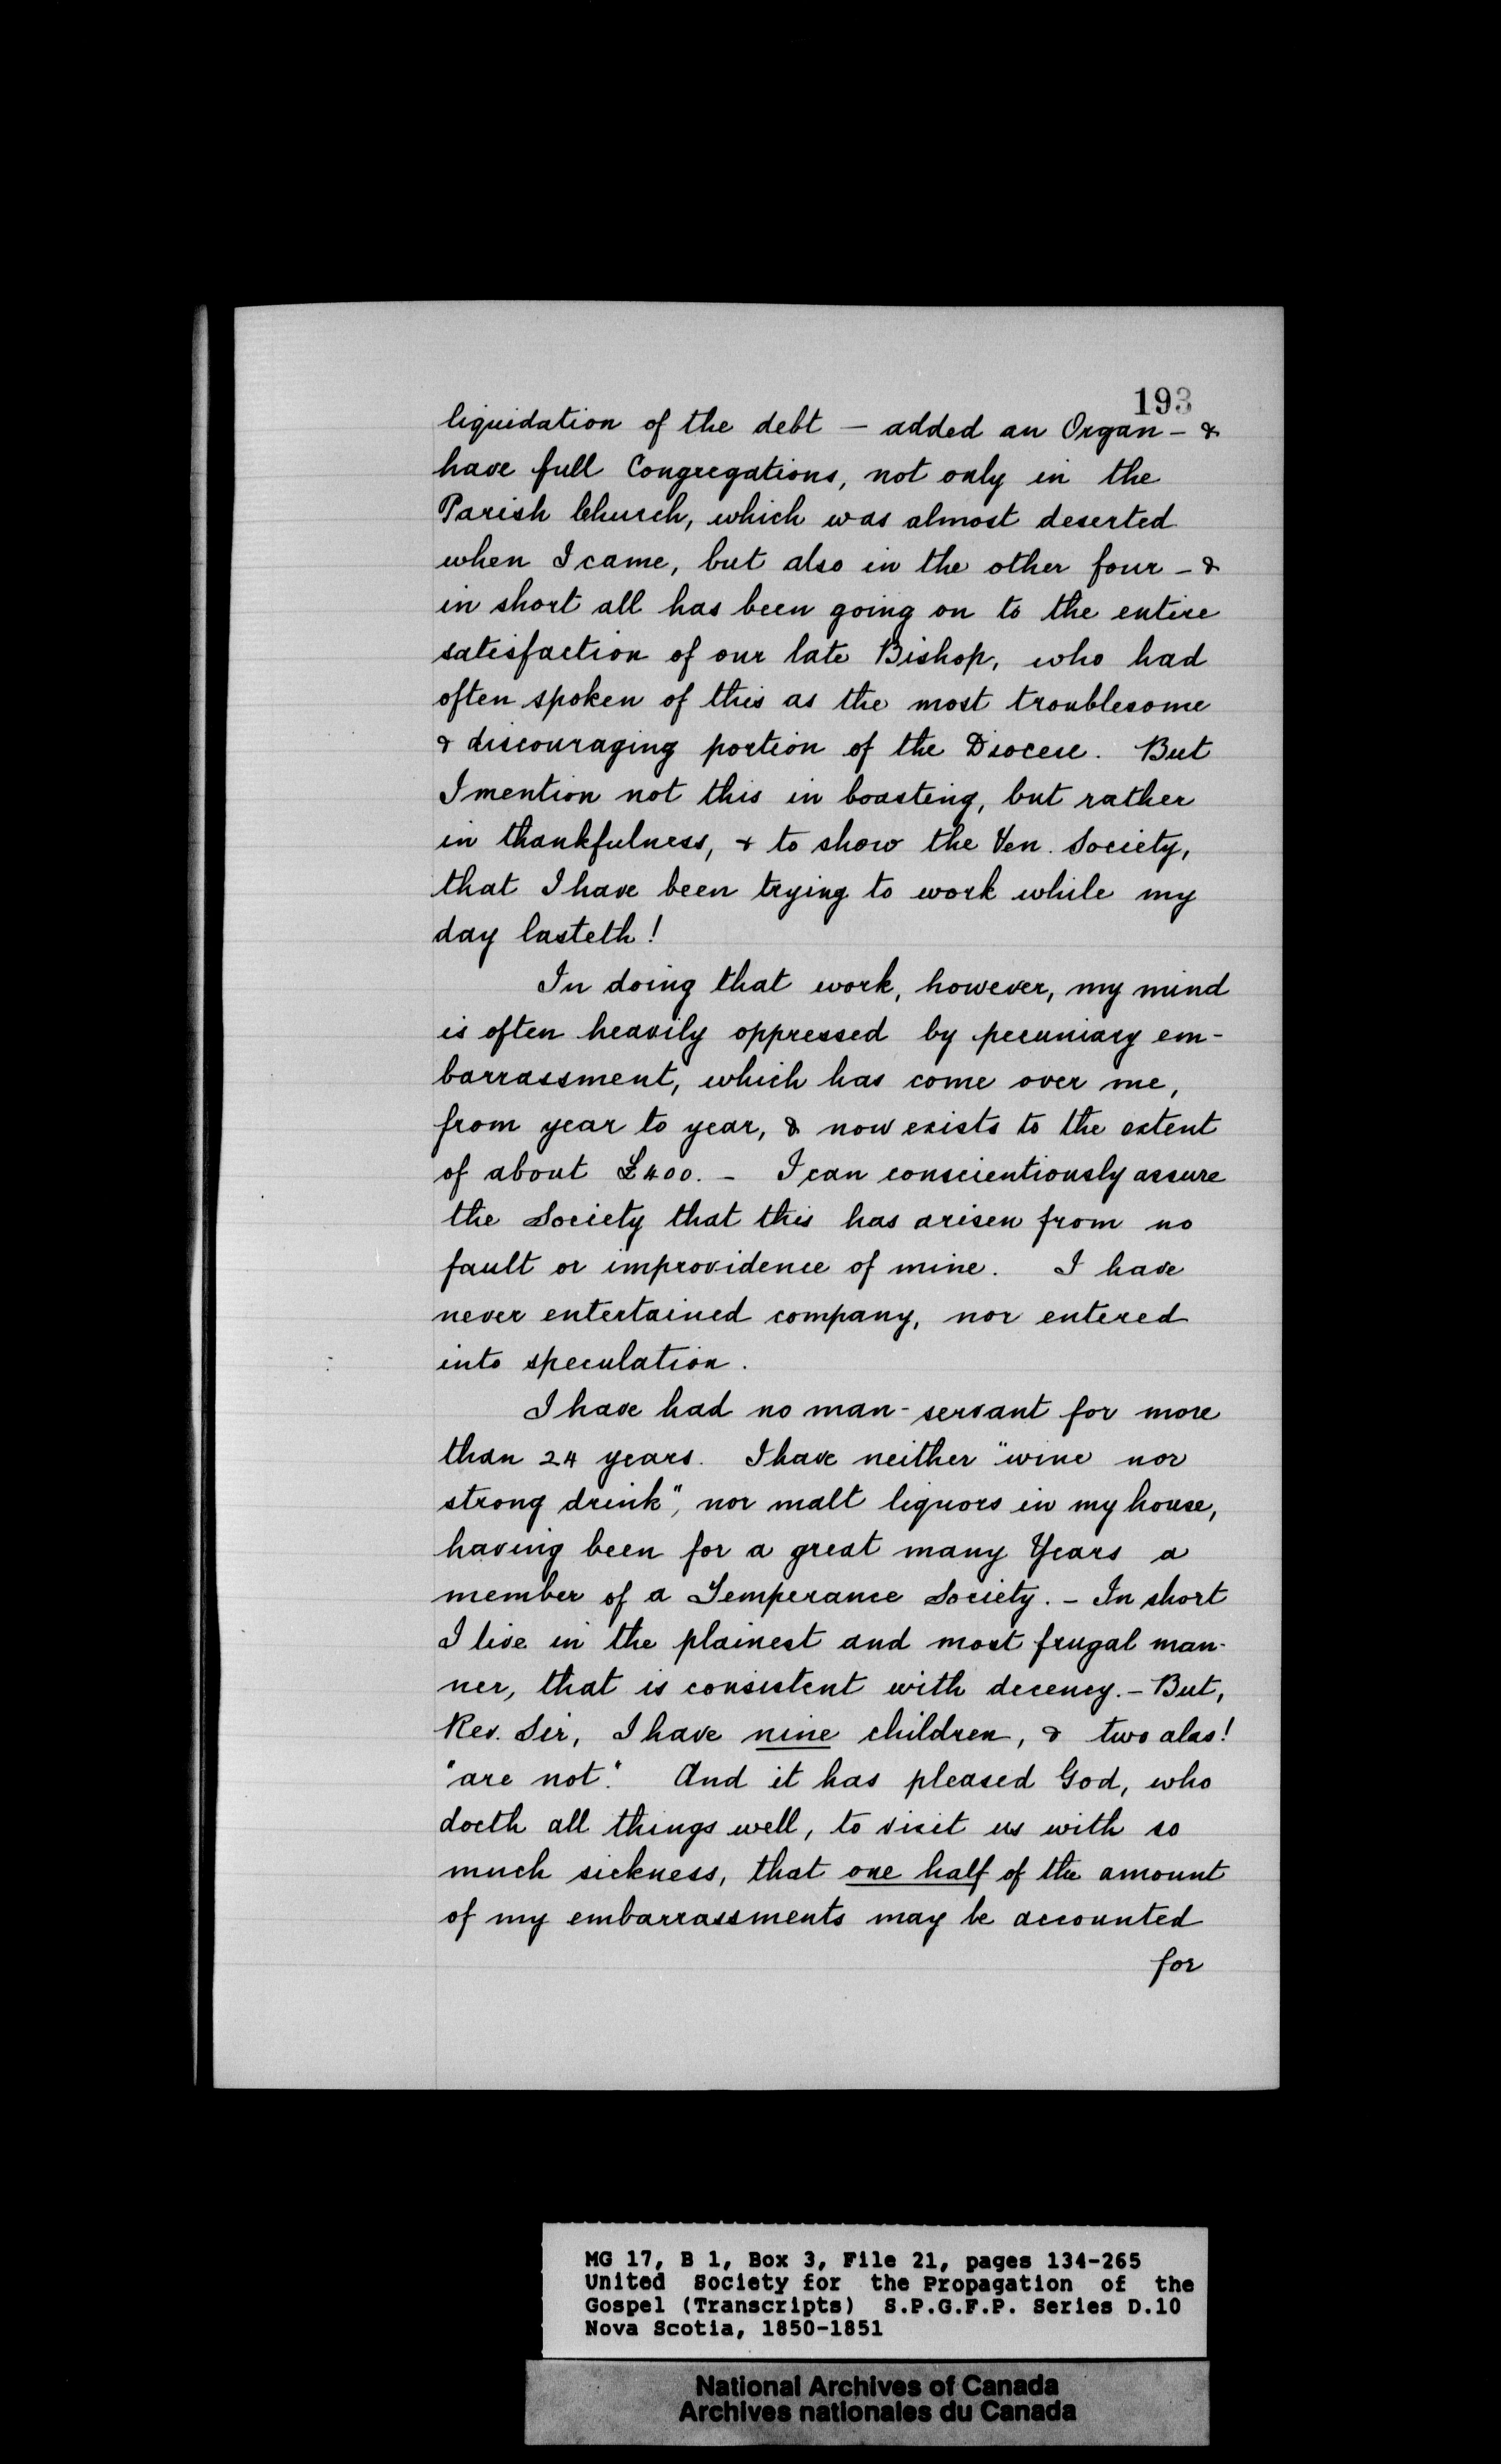 193
liquidation of the debt — added an Organ — &
have full Congregations, not only in the
Parish Church, which was almost deserted
when I came, but also in the other four — &
in short all has been going on to the entire
satisfaction of our late Bishop, who had
often spoken of this as the most troublesome
& discouraging portion of the Diocese. But
I mention not this in boasting, but rather
in thankfulness, & to show the Ven. Society,
that I have been trying to work while my
day lasteth!
In doing that work, however, my mind
is often heavily oppressed by pecuniary em-
barrassment, which has come over me,
from year to year, & now exists to the extent
of about £400. — I can conscientiously assure
the Society that this has arisen from no
fault or improvidence of mine. I have
never entertained company, nor entered
into speculation.
I have had no man-servant for more
than 24 years. I have neither "wine nor
strong drink", nor malt liquors in my house,
having been for a great many Years a
member of a Temperance Society. — In short
I live in the plainest and most frugal man-
ner, that is consistent with decency. — But,
Rev. Sir, I have nine children, & two alas!
"are not." And it has pleased God, who
doeth all things well, to visit us with so
much sickness, that one half of the amount
of my embarrassments may be accounted
for
MG 17, B 1, Box 3, File 21, pages 134-265
United Society for the Propagation of the
Gospel (Transcripts) S.P.G.F.P. Series D.10
Nova Scotia, 1850-1851
National Archives of Canada
Archives nationales du Canada